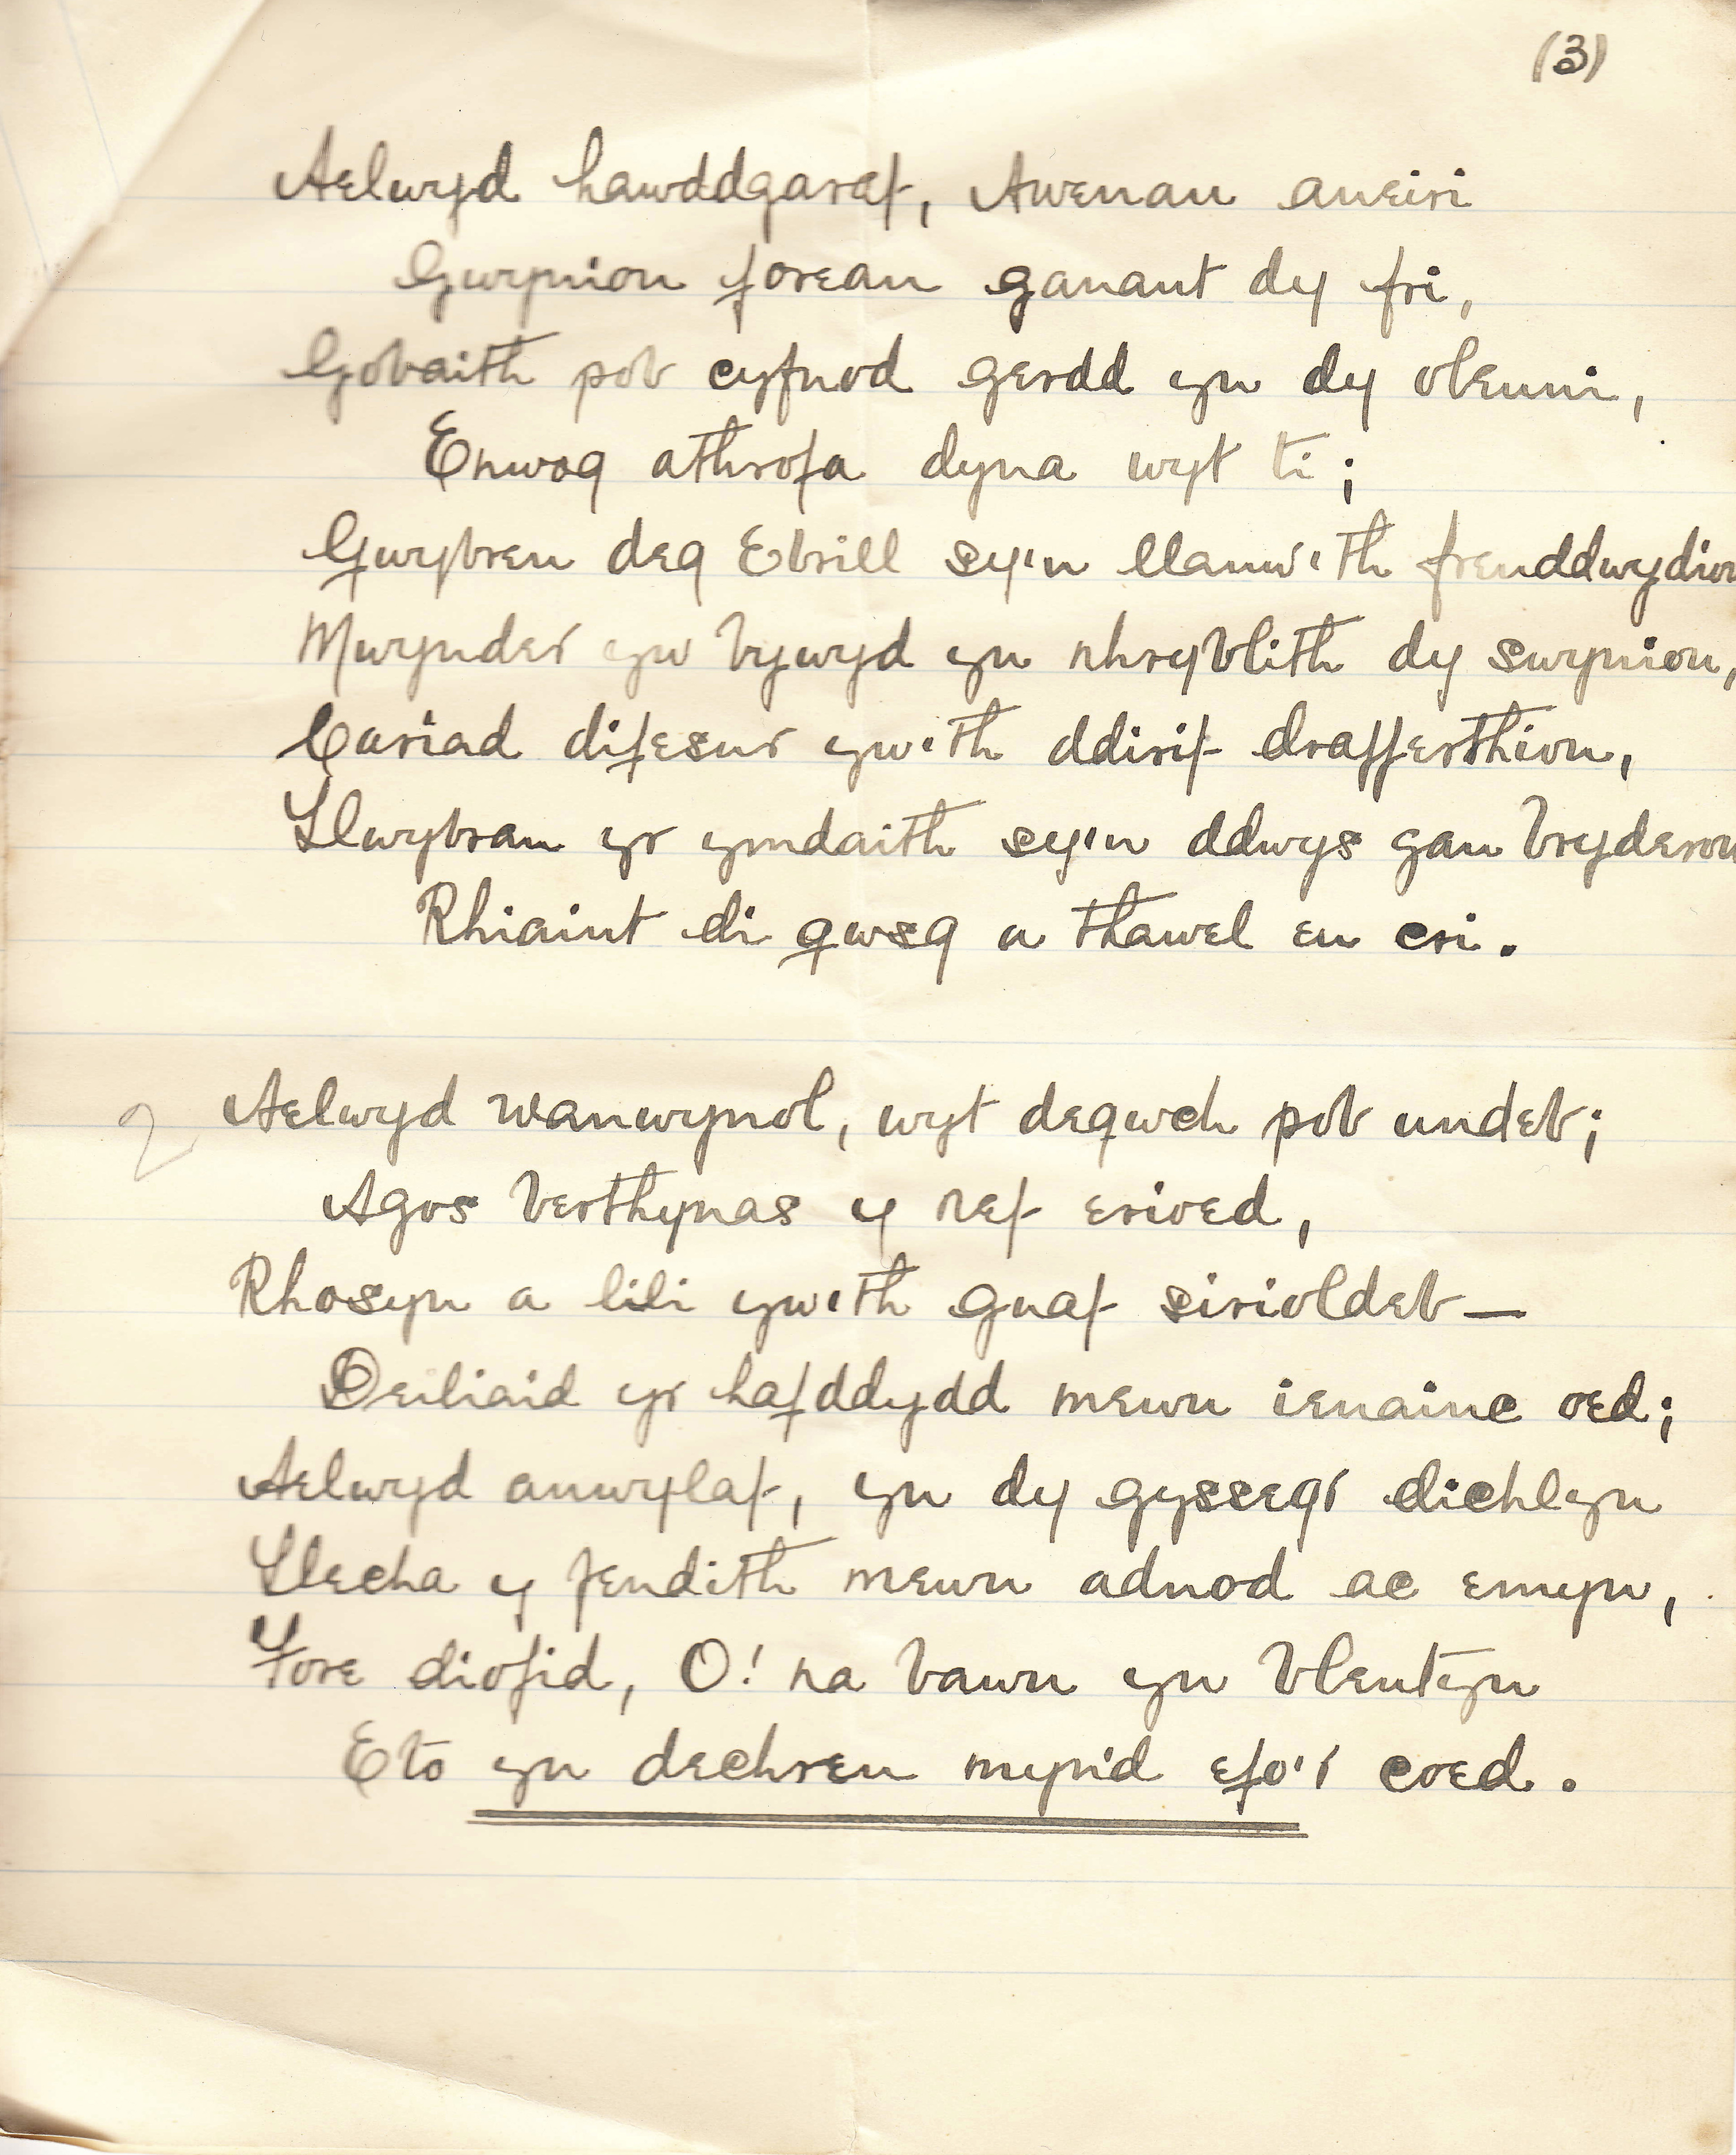 (3)
Aelwyd hawddgaraf, Awenau aneiri
Gwynion forean ganant dy fri,
Gobaith pob cyfnod gerdd yn dy oleuni,
Enwog athrofa dyna wyt ti;
Gwybren deg Ebrill sy'n llanw'th freuddwydion
Mwynder yw bywyd yn nhryblith dy swynion,
Cariad difesur yw'th ddirif drafferthion,
Llwybrau yr ymdaith sy'n ddwys gan bryderon
Rhiaint di gwsg a thawel eu cri.
2 Aelwyd wanwynol, wyt degwch pob undeb;
Agos berthynas y nef erioed,
Rhosyn a lili yw'th gnaf sirioldeb —
Deiliaid yr hafddydd mewn ienainc oed;
Aelwyd anwylaf, yn dy gyssegr dichlyn
Llecha y fendith mewn adnod ac emyn,
Fore diofid, O! na bawn yn blentyn
Eto yn dechreu myn'd efo'r coed.